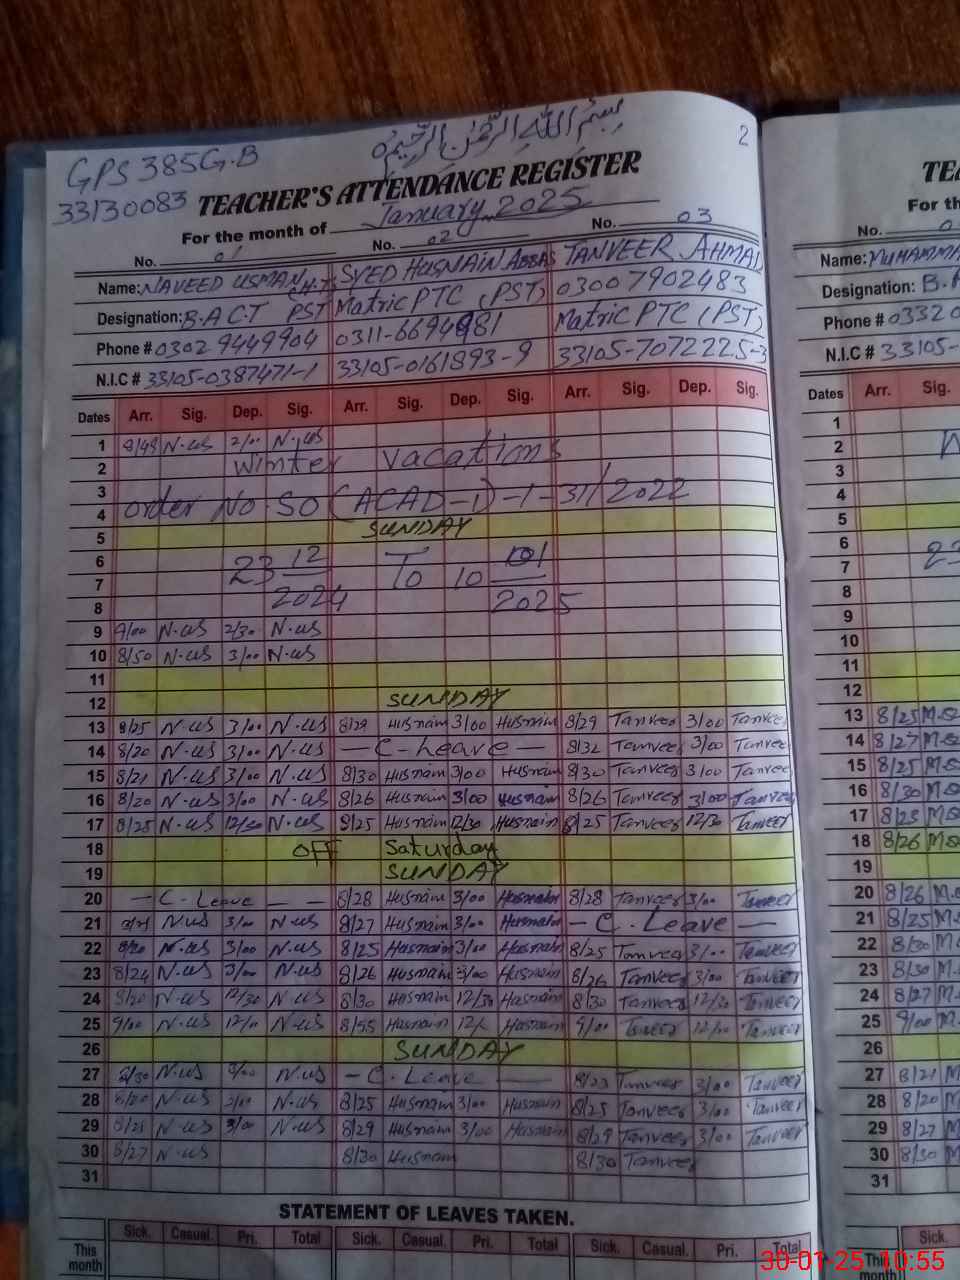 بِسْمِ اللهِ الرَّحْمٰنِ الرَّحِيْمِ
2
GPS 385G.B
33130083
TEACHER'S ATTENDANCE REGISTER
For the month of January 2025
No. 01 No. 02 No. 03
Name: NAVEED USMAN SYED HUSNAIN ABBAS TANVEER AHMAD
Designation: B.A C.T PST Matric PTC (PST) 03007902483
Phone # 0302 9449904 0311-6694981 Matric PTC (PST)
N.I.C # 33105-0387471-1 33105-0161893-9 33105-7072225-3
Dates Arr. Sig. Dep. Sig. Arr. Sig. Dep. Sig. Arr. Sig. Dep. Sig.
1 8/45 N.us 2/00 N.us
2 winter vacations
3
4 order NO. SO (ACAD-1)-1-31/2022
5 SUNDAY
6 23 12 To 10 01
7
8 2024 2025
9 9/00 N.us 2/30 N.us
10 8/50 N.us 3/00 N.us
11
12 SUNDAY
13 8/25 N.us 3/00 N.us 8/29 Husnain 3/00 Husnain 8/29 Tanveer 3/00 Tanveer
14 8/20 N.us 3/00 N.us - C-Leave - 8/32 Tanveer 3/00 Tanveer
15 8/21 N.us 3/00 N.us 8/30 Husnain 3/00 Husnain 8/30 Tanveer 3/00 Tanveer
16 8/20 N.us 3/00 N.us 8/26 Husnain 3/00 Husnain 8/26 Tanveer 3/00 Tanveer
17 8/25 N.us 12/30 N.us 8/25 Husnain 12/30 Husnain 8/25 Tanveer 12/30 Tanveer
18 OFF Saturday
19 SUNDAY
20 - C-Leave - - 8/28 Husnain 3/00 Husnain 8/28 Tanveer 3/00 Tanveer
21 N.us 3/00 N.us 8/27 Husnain 3/00 Husnain - C.Leave -
22 8/20 N.us 3/00 N.us 8/25 Husnain 3/00 Husnain 8/25 Tanveer 3/00 Tanveer
23 8/24 N.us 3/00 N.us 8/26 Husnain 3/00 Husnain 8/26 Tanveer 3/00 Tanveer
24 8/20 N.us 12/30 N.us 8/30 Husnain 12/30 Husnain 8/30 Tanveer 12/30 Tanveer
25 9/00 N.us 12/00 N.us 8/55 Husnain Husnain 9/00 Tanveer 12/00 Tanveer
26 SUNDAY
27 8/30 N.us 3/00 N.us - C-Leave - Tanveer 3/00 Tanveer
28 8/20 N.us 3/00 N.us 8/25 Husnain 3/00 Husnain 8/25 Tanveer 3/00 Tanveer
29 8/28 N.us 3/00 N.us 8/29 Husnain 3/00 Husnain 8/29 Tanveer 3/00 Tanveer
30 8/27 N.us 8/30 Husnain 8/30 Tanveer
31
STATEMENT OF LEAVES TAKEN.
Sick. Casual. Pri. Total Sick. Casual. Pri. Total Sick. Casual. Pri. Total
This month
No.
Name: MUHAMMA
Designation: B.A
Phone # 0332
N.I.C # 33105-
Dates Arr. Sig.
1
2
3
4
5
6
7 23
8
9
10
11
12
13 8/25
14 8/27
15 8/25
16 8/30
17 8/25
18 8/26
19
20 8/26
21 8/25
22 8/30
23 8/30
24 8/27
25 9/00
26
27 8/21
28 8/20
29 8/27
30 8/30
31
Sick.
This month
30-01-25 10:55